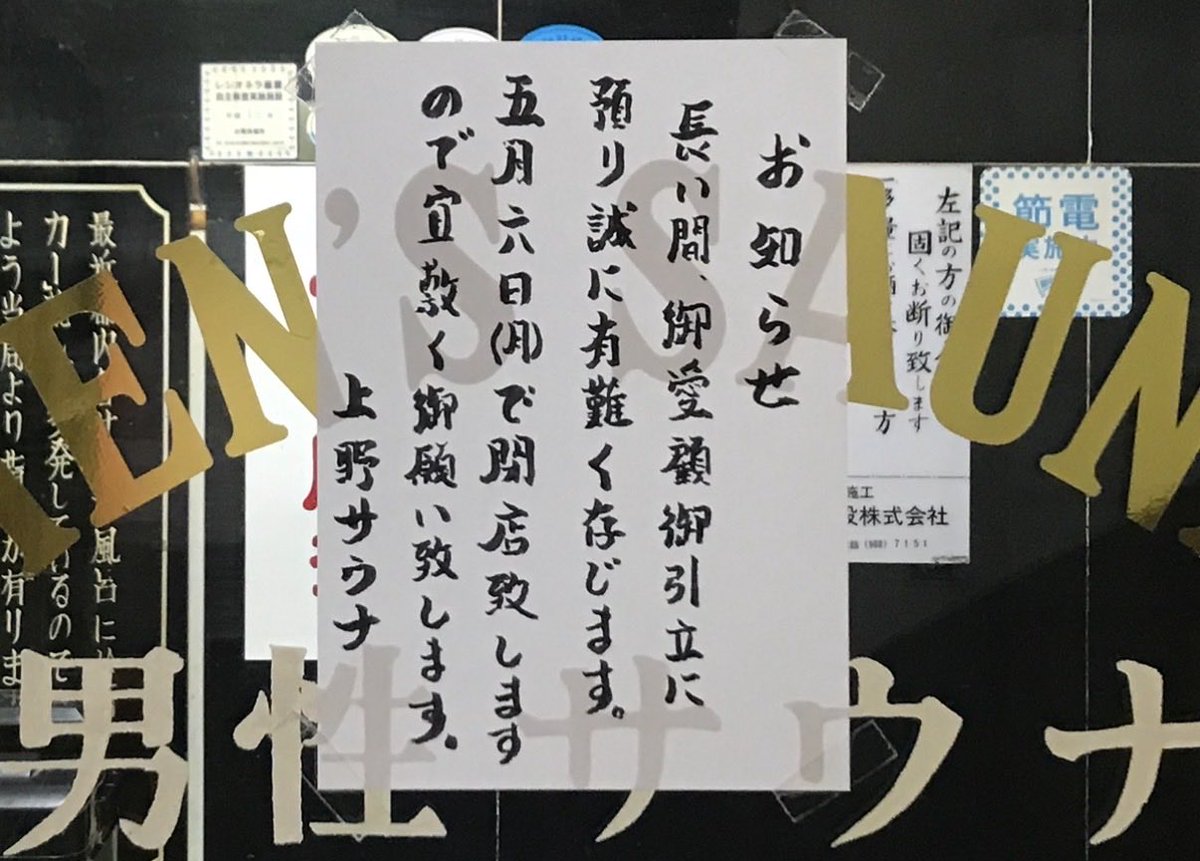 お知らせ
長い間、御愛顧御引立に
預り誠に有難く存じます。
五月六日(月)で閉店致します
ので宜敷く御願い致します。
上野サウナ
MEN'S SAUNA
男性サウナ
レジオネラ
左記の方の御
固くお断り致します
方
施工
設株式会社
7151
節電
実施
最近都内
風呂に
発して
るので
よう当局より
が有りま